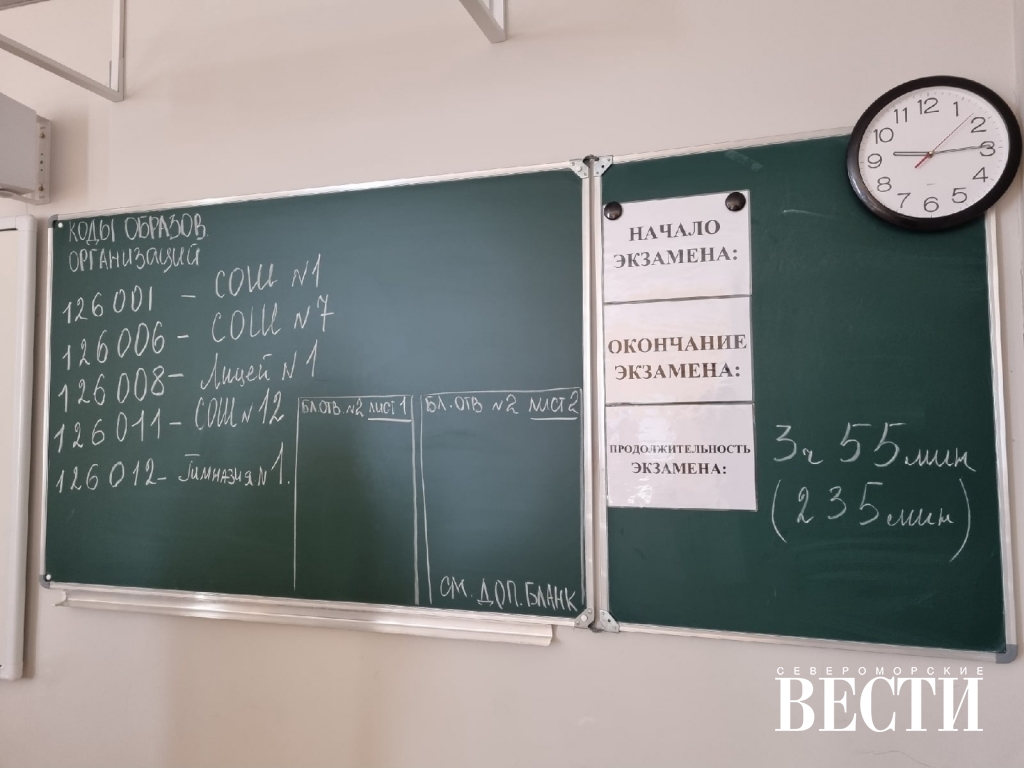 КОДЫ ОБРАЗОВ.
ОРГАНИЗАЦИЙ
126001 - СОШ №1
126006 - СОШ №7
126008 - Лицей №1
126011 - СОШ №12
126012 - Гимназия №1.
БЛ.ОТВ. №2 ЛИСТ 1
БЛ. ОТВ №2 ЛИСТ 2
СМ. ДОП. БЛАНК
НАЧАЛО
ЭКЗАМЕНА:
ОКОНЧАНИЕ
ЭКЗАМЕНА:
ПРОДОЛЖИТЕЛЬНОСТЬ
ЭКЗАМЕНА:
3ч 55 мин
(235 мин)
12
1
2
3
4
5
6
7
8
9
10
11
СЕВЕРОМОРСКИЕ
ВЕСТИ